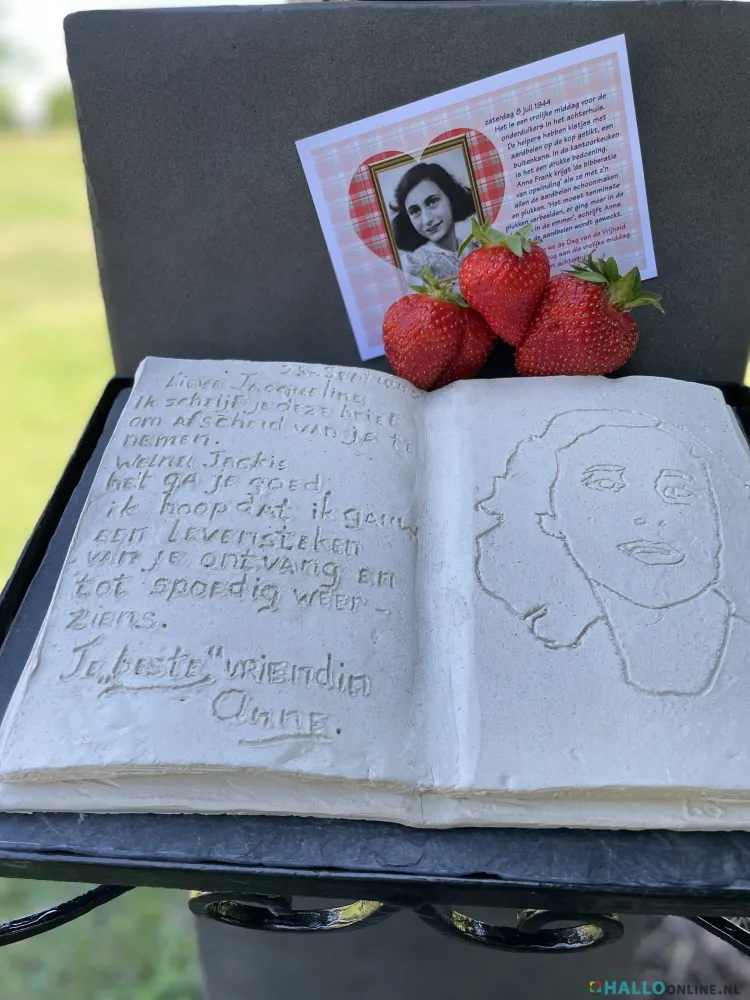 zaterdag 8 juli 1944
Het is een vrolijke middag voor de
onderduikers in het achterhuis.
De helpers hebben kistjes met
aardbeien op de kop getikt, een
buitenkans. In de kantoorkeuken
is het een drukke bedoening.
Anne Frank krijgt 'de bibberatie
van opwinding' als ze met z'n
allen de aardbeien schoonmaken
en plukken. 'Het moest tenminste
plukken verbeelden, er ging meer in de
in de emmer', schrijft Anne.
aardbeien wordt geweckt.
we de Dag van de Vrijheid
aan die vrolijke middag
achterhuis
Lieve Jacqueline
Ik schrijf je deze brief
om afscheid van je te
nemen.
Welnu Jackie
het ga je goed
ik hoop dat ik gauw
een levensteken
van je ontvang en
tot spoedig weer-
ziens.
Je „beste" vriendin
Anne.
HALLOONLINE.NL